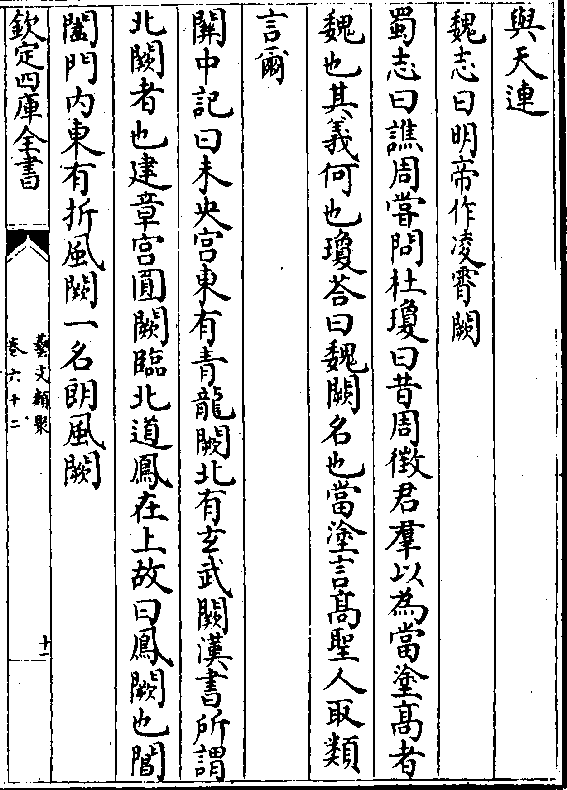 與天連
魏志曰明帝作凌霄闕
蜀志曰譙周嘗問杜瓊曰昔周徵君羣以為當塗髙者
魏也其義何也瓊荅曰魏闕名也當塗言髙聖人取類
言爾
闗中記曰未央宫東有青龍闕北有玄武闕漢書所謂
北闕者也建章宫圓闕臨北道鳳在上故曰鳳闕也閶
闔門内東有折風闕一名朗風闕
欽定四庫全書
藝文類聚
卷六十二
十一